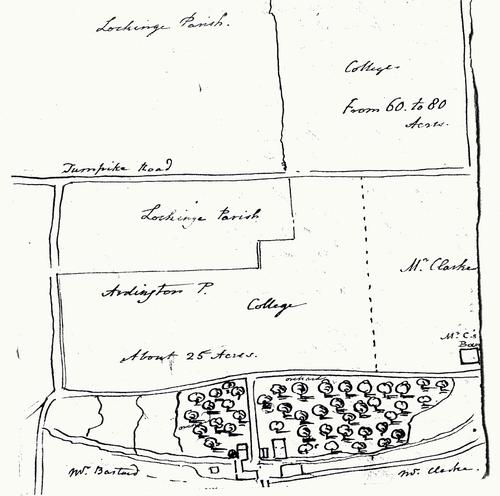 Lockinge Parish.
College
From 60. to 80
Acres.
Turnpike Road
Lockinge Parish
Mr. Clarke
Ardington P.
College
Mr. C's
About 25 Acres.
orchard
Mr. Bastard
Mr. Clarke.